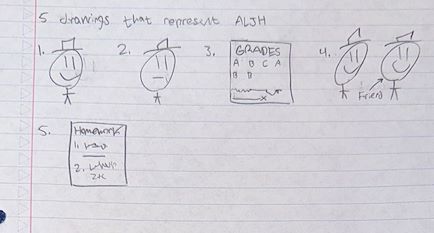 5 drawings that represent ALJH
1. 2. 3. 4.
GRADES
A B C A
B B
Friend
5.
Homework
1.
2.
2x